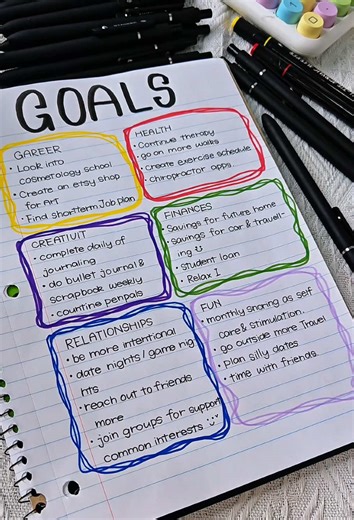 GOALS
GAREER
• Look into
cosmetology school
• Create an etsy shop
for Art
• Find short-term Job plan
HEALTH
• Continue therapy
• go on more walks
• create exercise schedule
• chiropractor apps
CREATIVIT
• complete daily of
journaling
• do bullet journal &
scrapbook weekly
• countine penpals
FINANCES
Savings for future home
• savings for car & travell-
ing
• student loan
• Relax I
RELATIONSHIPS
• be more intentional
• date nights/game nig
hts
• reach out to friends
more
• join groups for support
common interests
FUN
• monthly snaring as self
care & stimulation.
• go outside more Travel
• plan silly dates
• time with friends.